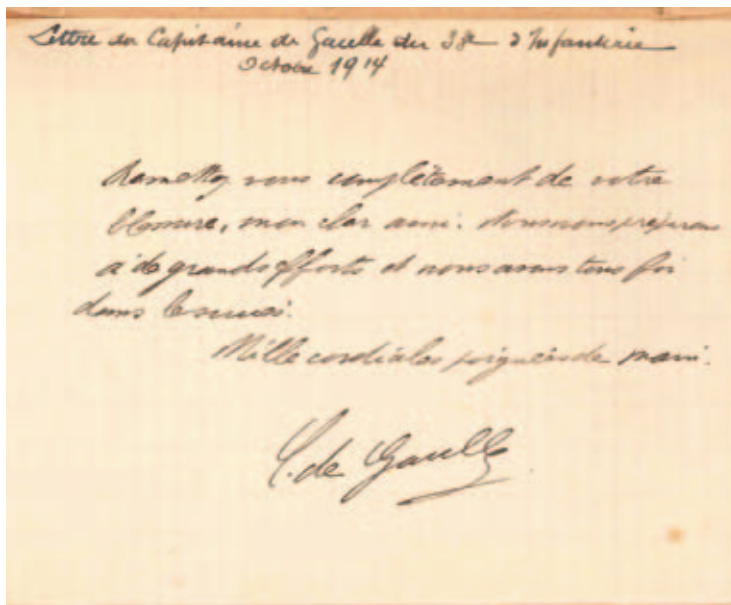 Lettre du Capitaine de Gaulle du 33e d'Infanterie
Octobre 1914
Remettez vous complètement de votre
blessure, mon cher ami. Nous nous préparons
à de grands efforts et nous avons tous foi
dans le succès.
Mille cordiales poignées de main.
C. de Gaulle